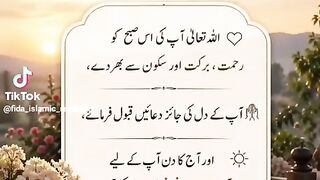 اللہ تعالیٰ آپ کی اس صبح کو
رحمت، برکت اور سکون سے بھر دے،
آپ کے دل کی جائز دعائیں قبول فرمائے،
اور آج کا دن آپ کے لیے
TikTok